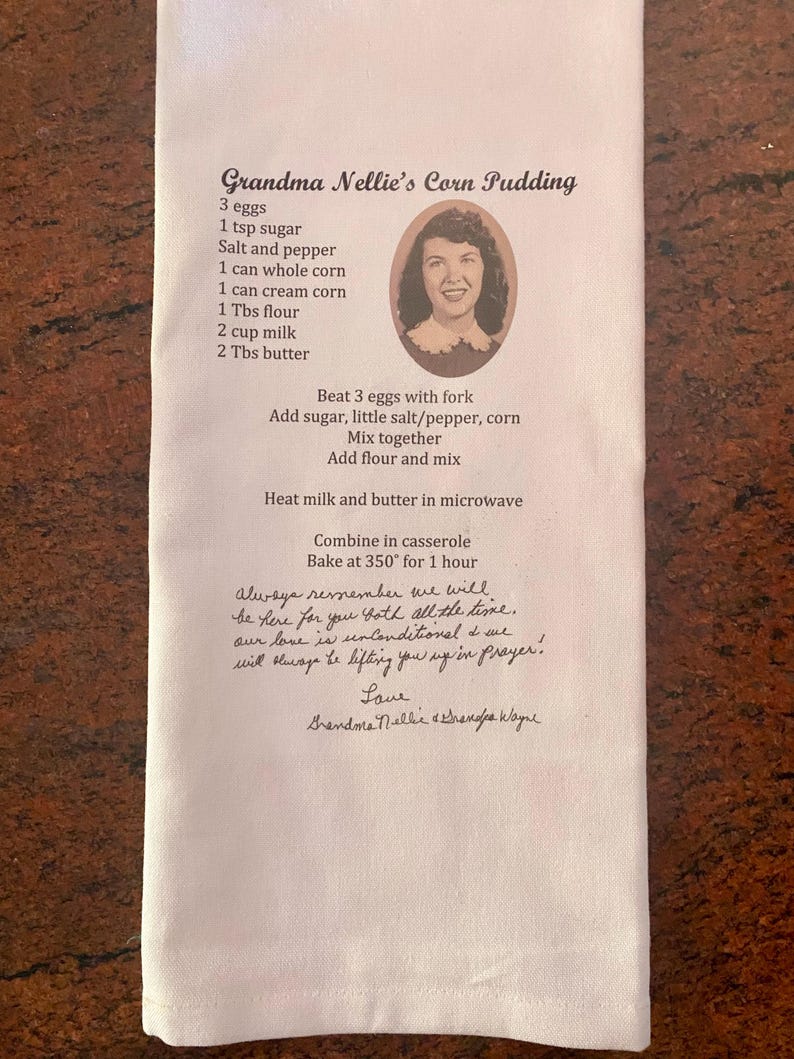 Grandma Nellie's Corn Pudding
3 eggs
1 tsp sugar
Salt and pepper
1 can whole corn
1 can cream corn
1 Tbs flour
2 cup milk
2 Tbs butter
Beat 3 eggs with fork
Add sugar, little salt/pepper, corn
Mix together
Add flour and mix
Heat milk and butter in microwave
Combine in casserole
Bake at 350° for 1 hour
Always remember we will
be here for you both all the time.
our love is unconditional & we
will always be lifting you up in prayer!
Love
Grandma Nellie & Grandpa Wayne